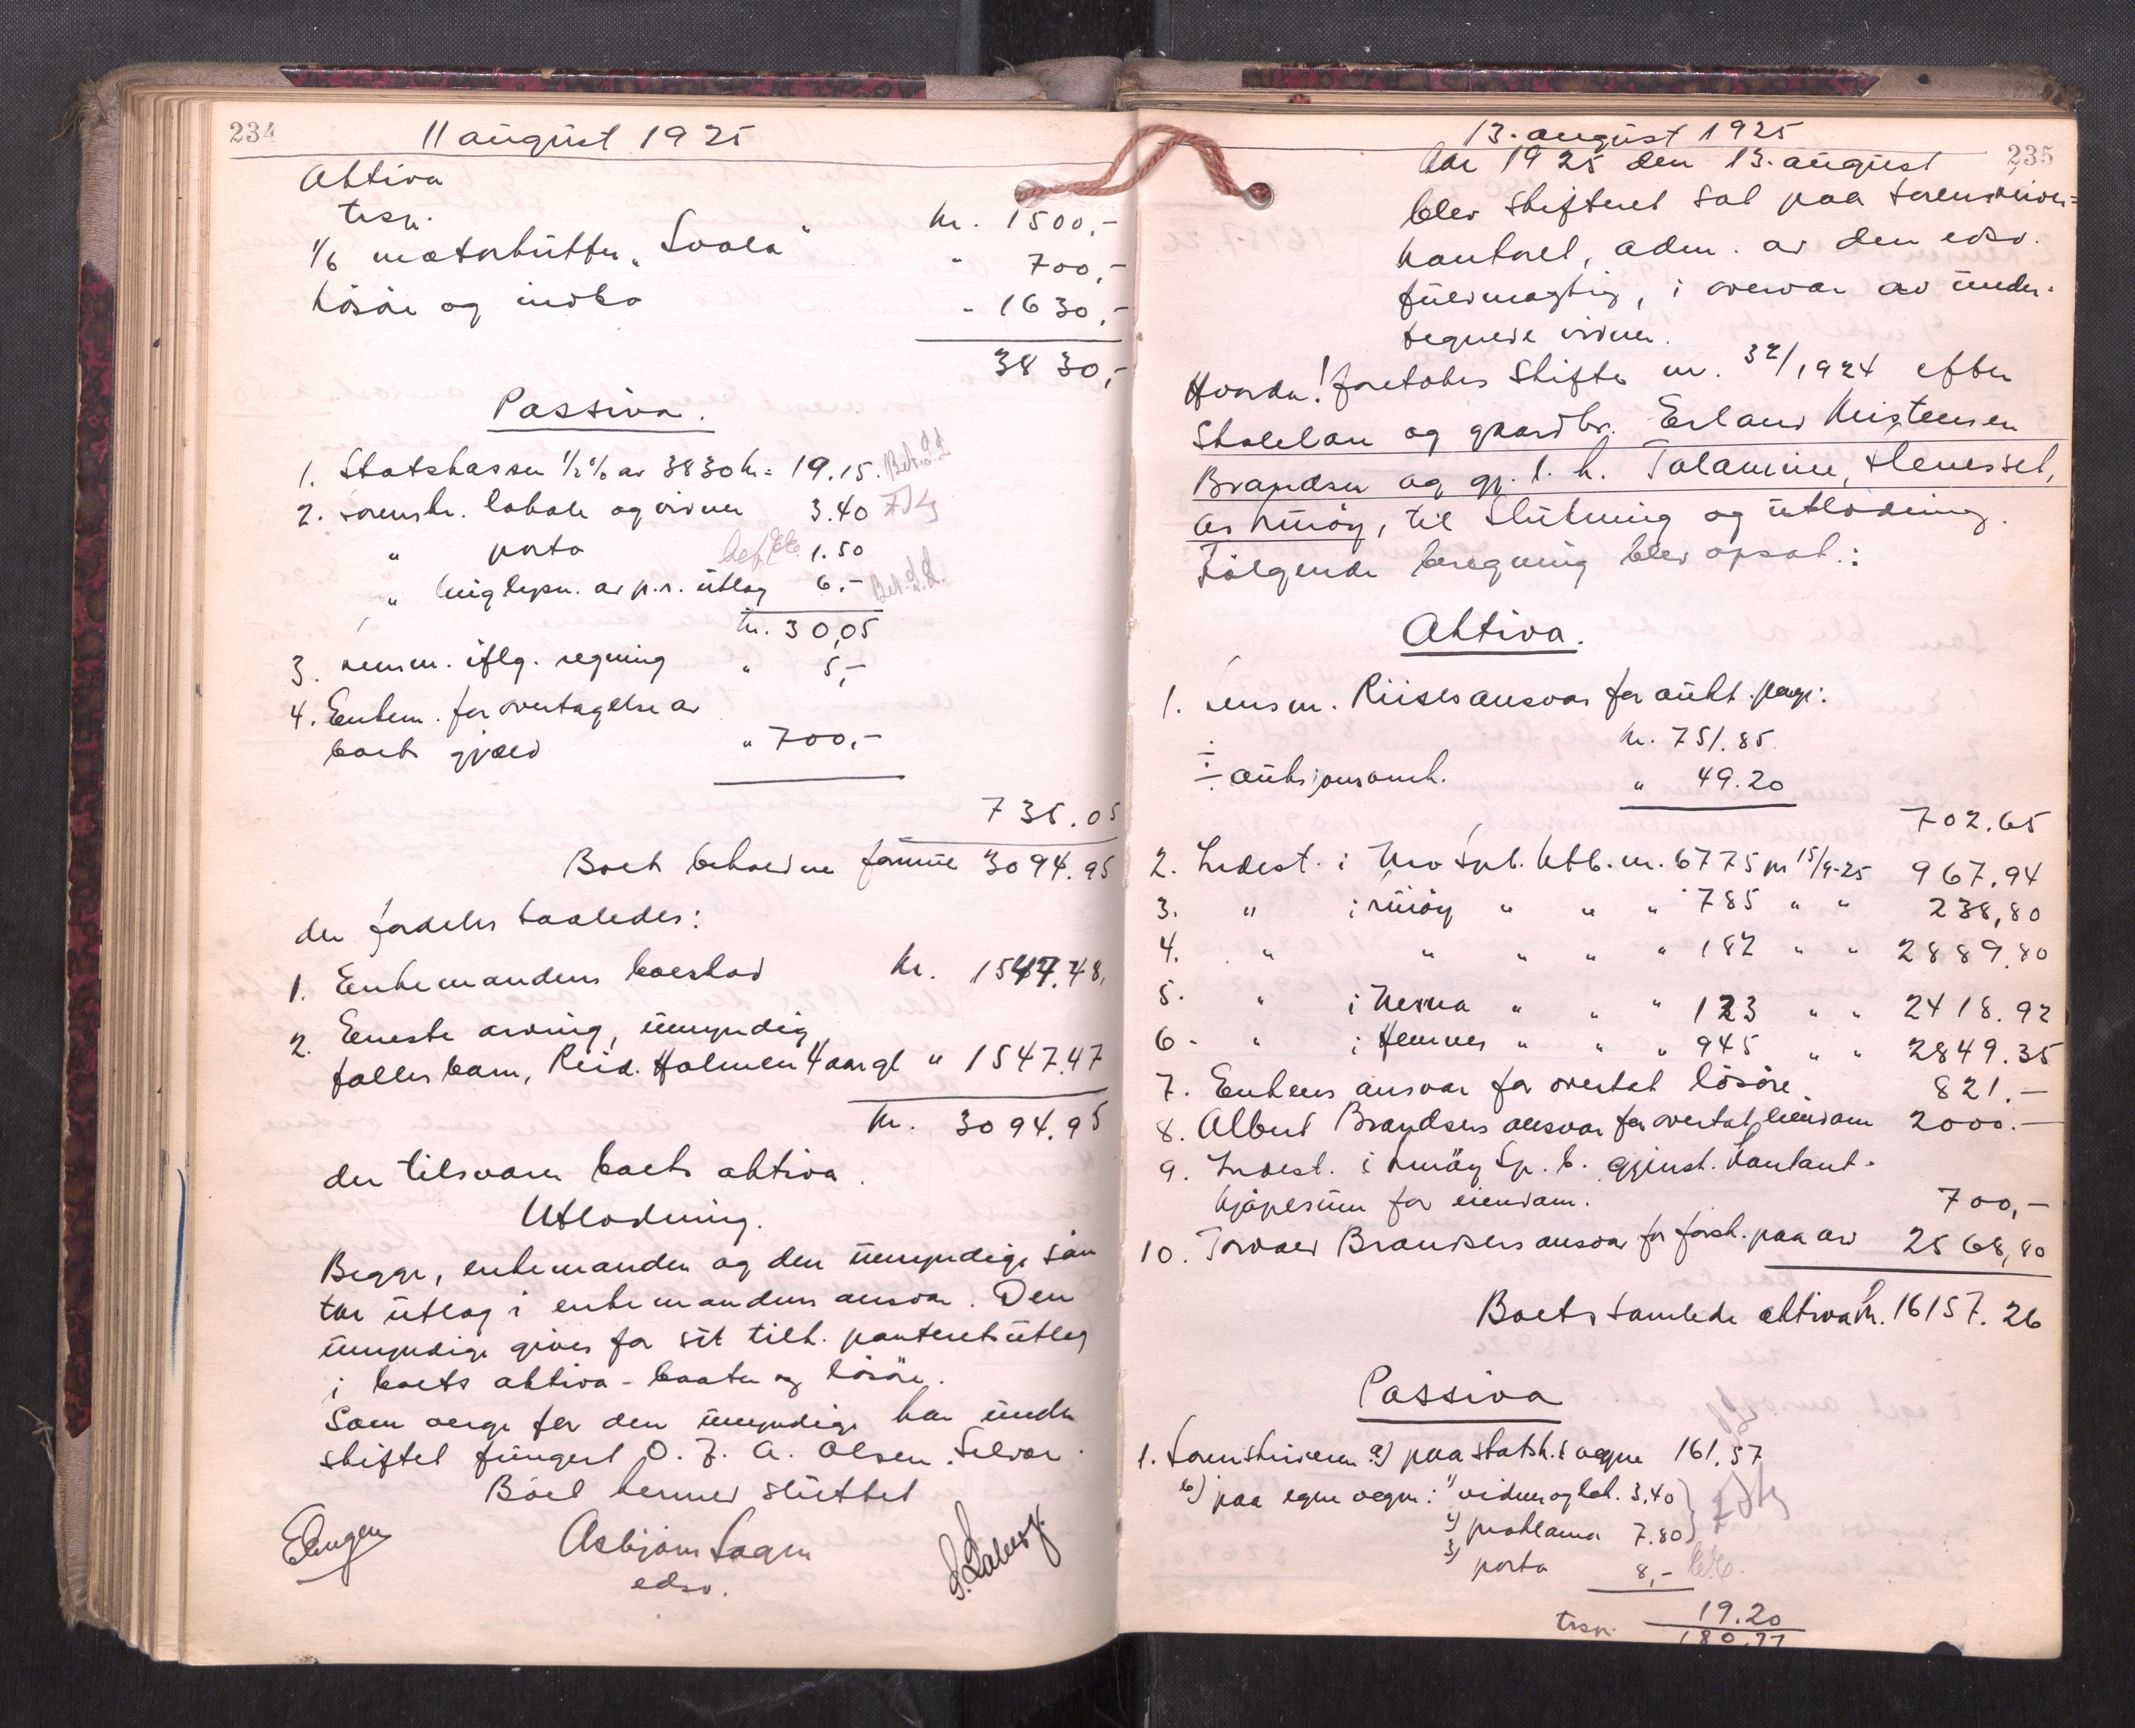 234
11 august 1925
Aktiva
trsp. kr. 1500,-
1/6 motorkutter "Svala" " 700,-
Lösöre og indbo " 1630,-
3830,-
Passiva.
1. Statskassen 1/2% av 3830 kr = 19.15. Bet.
2. sorenskr. lokale og vidner 3.40
" porto 1.50
" av p.r. utlæg 6.- Bet.
kr. 30,05
3. Lensm. iflg. regning " 5,-
4. Enkem. for overtagelse av
boets gjæld " 700,-
735.05
Boets beholdne formue 3094.95
der fordeles saaledes:
1. Enkemandens boeslod kr. 1547.48,
2. Eneste arving, umyndig
fælles barn, Reid. Holmen 4 aar gl " 1547.47
kr. 3094.95
der tilsvarer boets aktiva.
Utlodning.
Begge, enkemanden og den umyndige sön
tar utlæg i enkemandens ansvar. Den
umyndige gives for sit tilk. panteretsutlæg
i boets aktiva - baater og lösöre.
Som verge for den umyndige har under
skiftet fungert O. J. A. Olsen. Selvær.
Boet dermed sluttet
Asbjörn
edsv.
13. august 1925
235
Aar 1925 den 13. august
blev skifteret sat paa sorenskriver=
kontoret, adm. av den edsv.
fuldmægtig, i overvær av under-
tegnede vidner.
Hvorda! foretokes Skifte nr. 32/1924 efter
Skolelær og gaardbr. Erland Kristensen
Brandser og gj. l. h. Talamine, Stenesset,
av Luröy, til slutning og utlodning.
Følgende beregning blev opsat:
Aktiva.
1. Lensm. Riises ansvar for aukt. penge:
kr. 751.85
÷ auksjonsomk. " 49.20
702.65
2. Indest. i Mo Spb. ktb. nr. 6775 pr 15/9-25 967.94
3. " i Luröy " " " 785 " " 238,80
4. " " " " " 182 " " 2889.80
5. " i Nesna " " " 123 " " 2418.92
6. " i Hemnes " " " 945 " " 2849.35
7. Enkens ansvar for overtat lösöre. 821.-
8. Albert Brandsers ansvar for overtat eiendom 2000.-
9. Indest. i Luröy Sp. b. gjenst. kontant-
kjöpesum for eiendom. 700,-
10. Torvald Brandsers ansvar for forsk. paa arv 2568,80
Boets samlede aktiva kr. 16157.26
Passiva
1. Sorenskriveren a) paa statsk.s vegne 161.57
b) paa egne vegne: 1) vidner og lok. 3.40
2) proklama 7.80
3) porto 8,-
19.20
trsp. 180.77